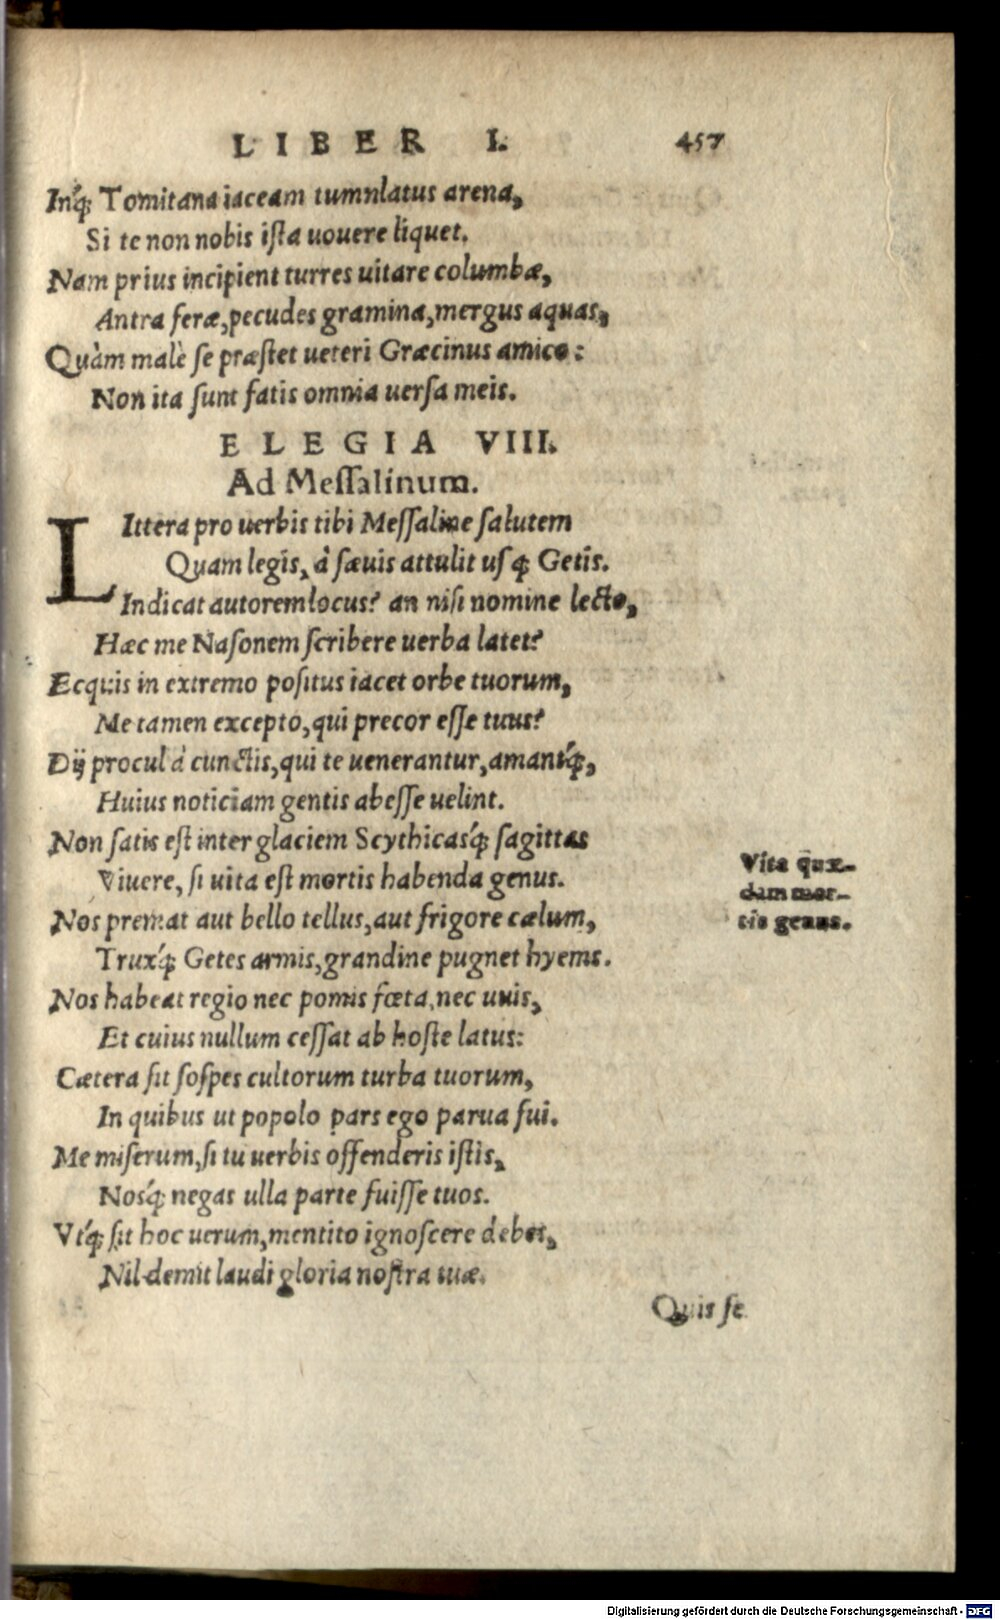 LIBER I. 457
Inq́; Tomitana iaceam tumnlatus arena,
Si te non nobis ista uouere liquet.
Nam prius incipient turres uitare columbæ,
Antra feræ, pecudes gramina, mergus aquas,
Quàm malè se præstet ueteri Græcinus amico:
Non ita sunt fatis omnia uersa meis.
ELEGIA VIII.
Ad Messalinum.
LIttera pro uerbis tibi Messaline salutem
Quam legis, à sæuis attulit usq; Getis.
Indicat autorem locus? an nisi nomine lecto,
Hæc me Nasonem scribere uerba latet?
Ecquis in extremo positus iacet orbe tuorum,
Me tamen excepto, qui precor esse tuus?
Dij procul à cunctis, qui te uenerantur, amantq́;,
Huius noticiam gentis abesse uelint.
Non satis est inter glaciem Scythicasq́; sagittas
Viuere, si uita est mortis habenda genus.
Nos premat aut bello tellus, aut frigore cælum,
Truxq́; Getes armis, grandine pugnet hyems.
Nos habeat regio nec pomis fœta, nec uuis,
Et cuius nullum cessat ab hoste latus:
Cætera sit sospes cultorum turba tuorum,
In quibus ut popolo pars ego parua fui.
Me miserum, si tu uerbis offenderis istis,
Nosq́; negas ulla parte fuisse tuos.
Vtq́; sit hoc uerum, mentito ignoscere debes,
Nil demit laudi gloria nostra tuæ.
Quis se
Vita quæ-
dam mor-
tis genus.
Digitalisierung gefördert durch die Deutsche Forschungsgemeinschaft - DFG